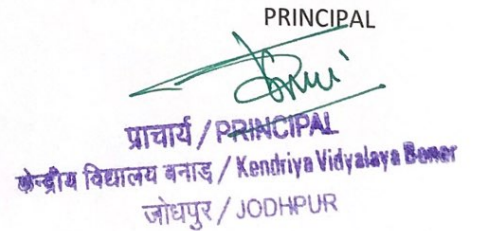 PRINCIPAL
प्राचार्य / PRINCIPAL
केन्द्रीय विद्यालय बनाड़ / Kendriya Vidyalaya Banar
जोधपुर / JODHPUR